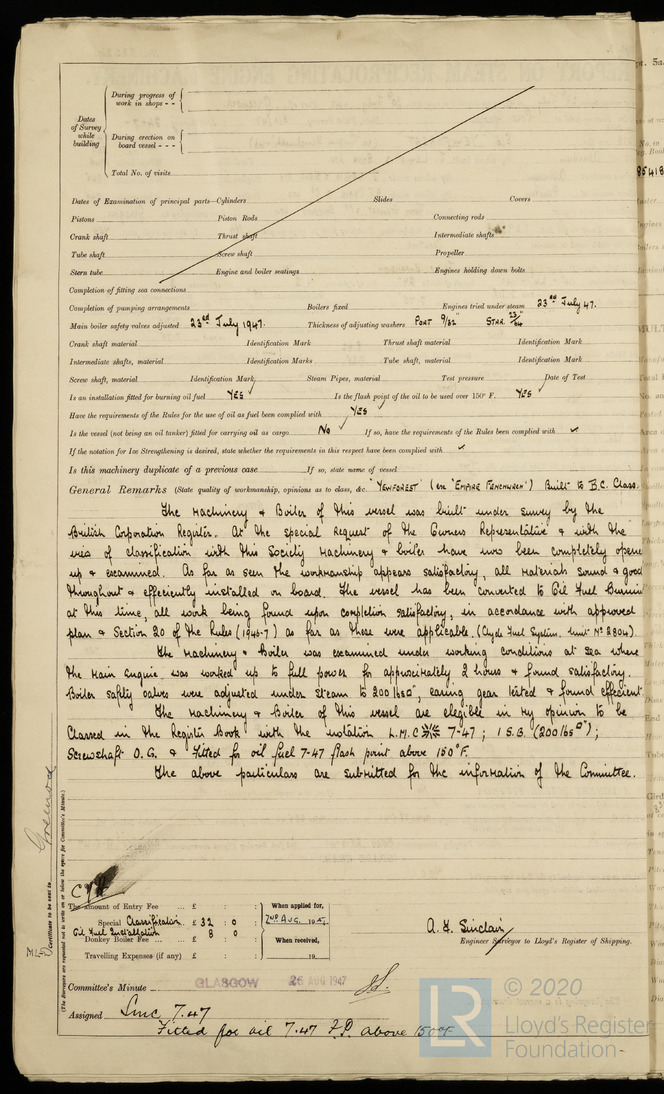 During progress of work in shops - -
Dates of Survey while building
During erection on board vessel - - -
Total No. of visits
Dates of Examination of principal parts—Cylinders Slides Covers
Pistons Piston Rods Connecting rods
Crank shaft Thrust shaft Intermediate shafts
Tube shaft Screw shaft Propeller
Stern tube Engine and boiler seatings Engines holding down bolts
Completion of fitting sea connections
Completion of pumping arrangements Boilers fixed Engines tried under steam 23rd July 47.
Main boiler safety valves adjusted 23rd July 1947. Thickness of adjusting washers PORT 9/32" STAR 23/64"
Crank shaft material Identification Mark Thrust shaft material Identification Mark
Intermediate shafts, material Identification Marks Tube shaft, material Identification Mark
Screw shaft, material Identification Mark Steam Pipes, material Test pressure Date of Test
Is an installation fitted for burning oil fuel YES ✓ Is the flash point of the oil to be used over 150° F. YES ✓
Have the requirements of the Rules for the use of oil as fuel been complied with YES ✓
Is the vessel (not being an oil tanker) fitted for carrying oil as cargo No ✓ If so, have the requirements of the Rules been complied with ✓
If the notation for Ice Strengthening is desired, state whether the requirements in this respect have been complied with ✓
Is this machinery duplicate of a previous case If so, state name of vessel
General Remarks (State quality of workmanship, opinions as to class, &c. "YEWFOREST" (ex "EMPIRE FENCHURCH") Built to B.C. Class.
The Machinery & Boiler of this vessel was built under survey by the
British Corporation Register. At the special request of the Owners Representative & with the
view of classification with this Society Machinery & boiler have now been completely opene
up & examined. As far as seen the workmanship appears satisfactory, all materials sound & good
throughout & efficiently installed on board. The vessel has been converted to Oil Fuel Burnin
at this time, all work being found upon completion satisfactory, in accordance with approved
plan & Section 20 of the Rules (1946-7) as far as these were applicable. (Clyde Fuel System. Unit No 2804)
The Machinery & Boiler was examined under working conditions at sea where
the Main Engine was worked up to full power for approximately 2 hours & found satisfactory.
Boiler safety valves were adjusted under steam to 200 lbs□", easing gear tested & found efficient
The Machinery & Boiler of this vessel are eligible in my opinion to be
Classed in the Register Book with the notation L.M.C 7-47; 1 S.B. (200 lbs□");
Screwshaft O.G. & fitted for oil fuel 7-47 flash point above 150°F.
The above particulars are submitted for the information of the Committee.
Certificate to be sent to Greenock
(The Surveyors are requested not to write on or below the space for Committee's Minute.)
The amount of Entry Fee ... £ : : When applied for,
Special Classification £ 32 : 0 : 2nd AUG. 1947
Oil Fuel Installation 8 0
Donkey Boiler Fee ... £ : : When received,
Travelling Expenses (if any) £ : : 19
A. F. Sinclair
Engineer Surveyor to Lloyd's Register of Shipping.
Committee's Minute GLASGOW 26 AUG 1947
Assigned Lmc 7.47
Fitted for oil 7.47 F.P. above 150°F
LR
© 2020
Lloyd's Register
Foundation